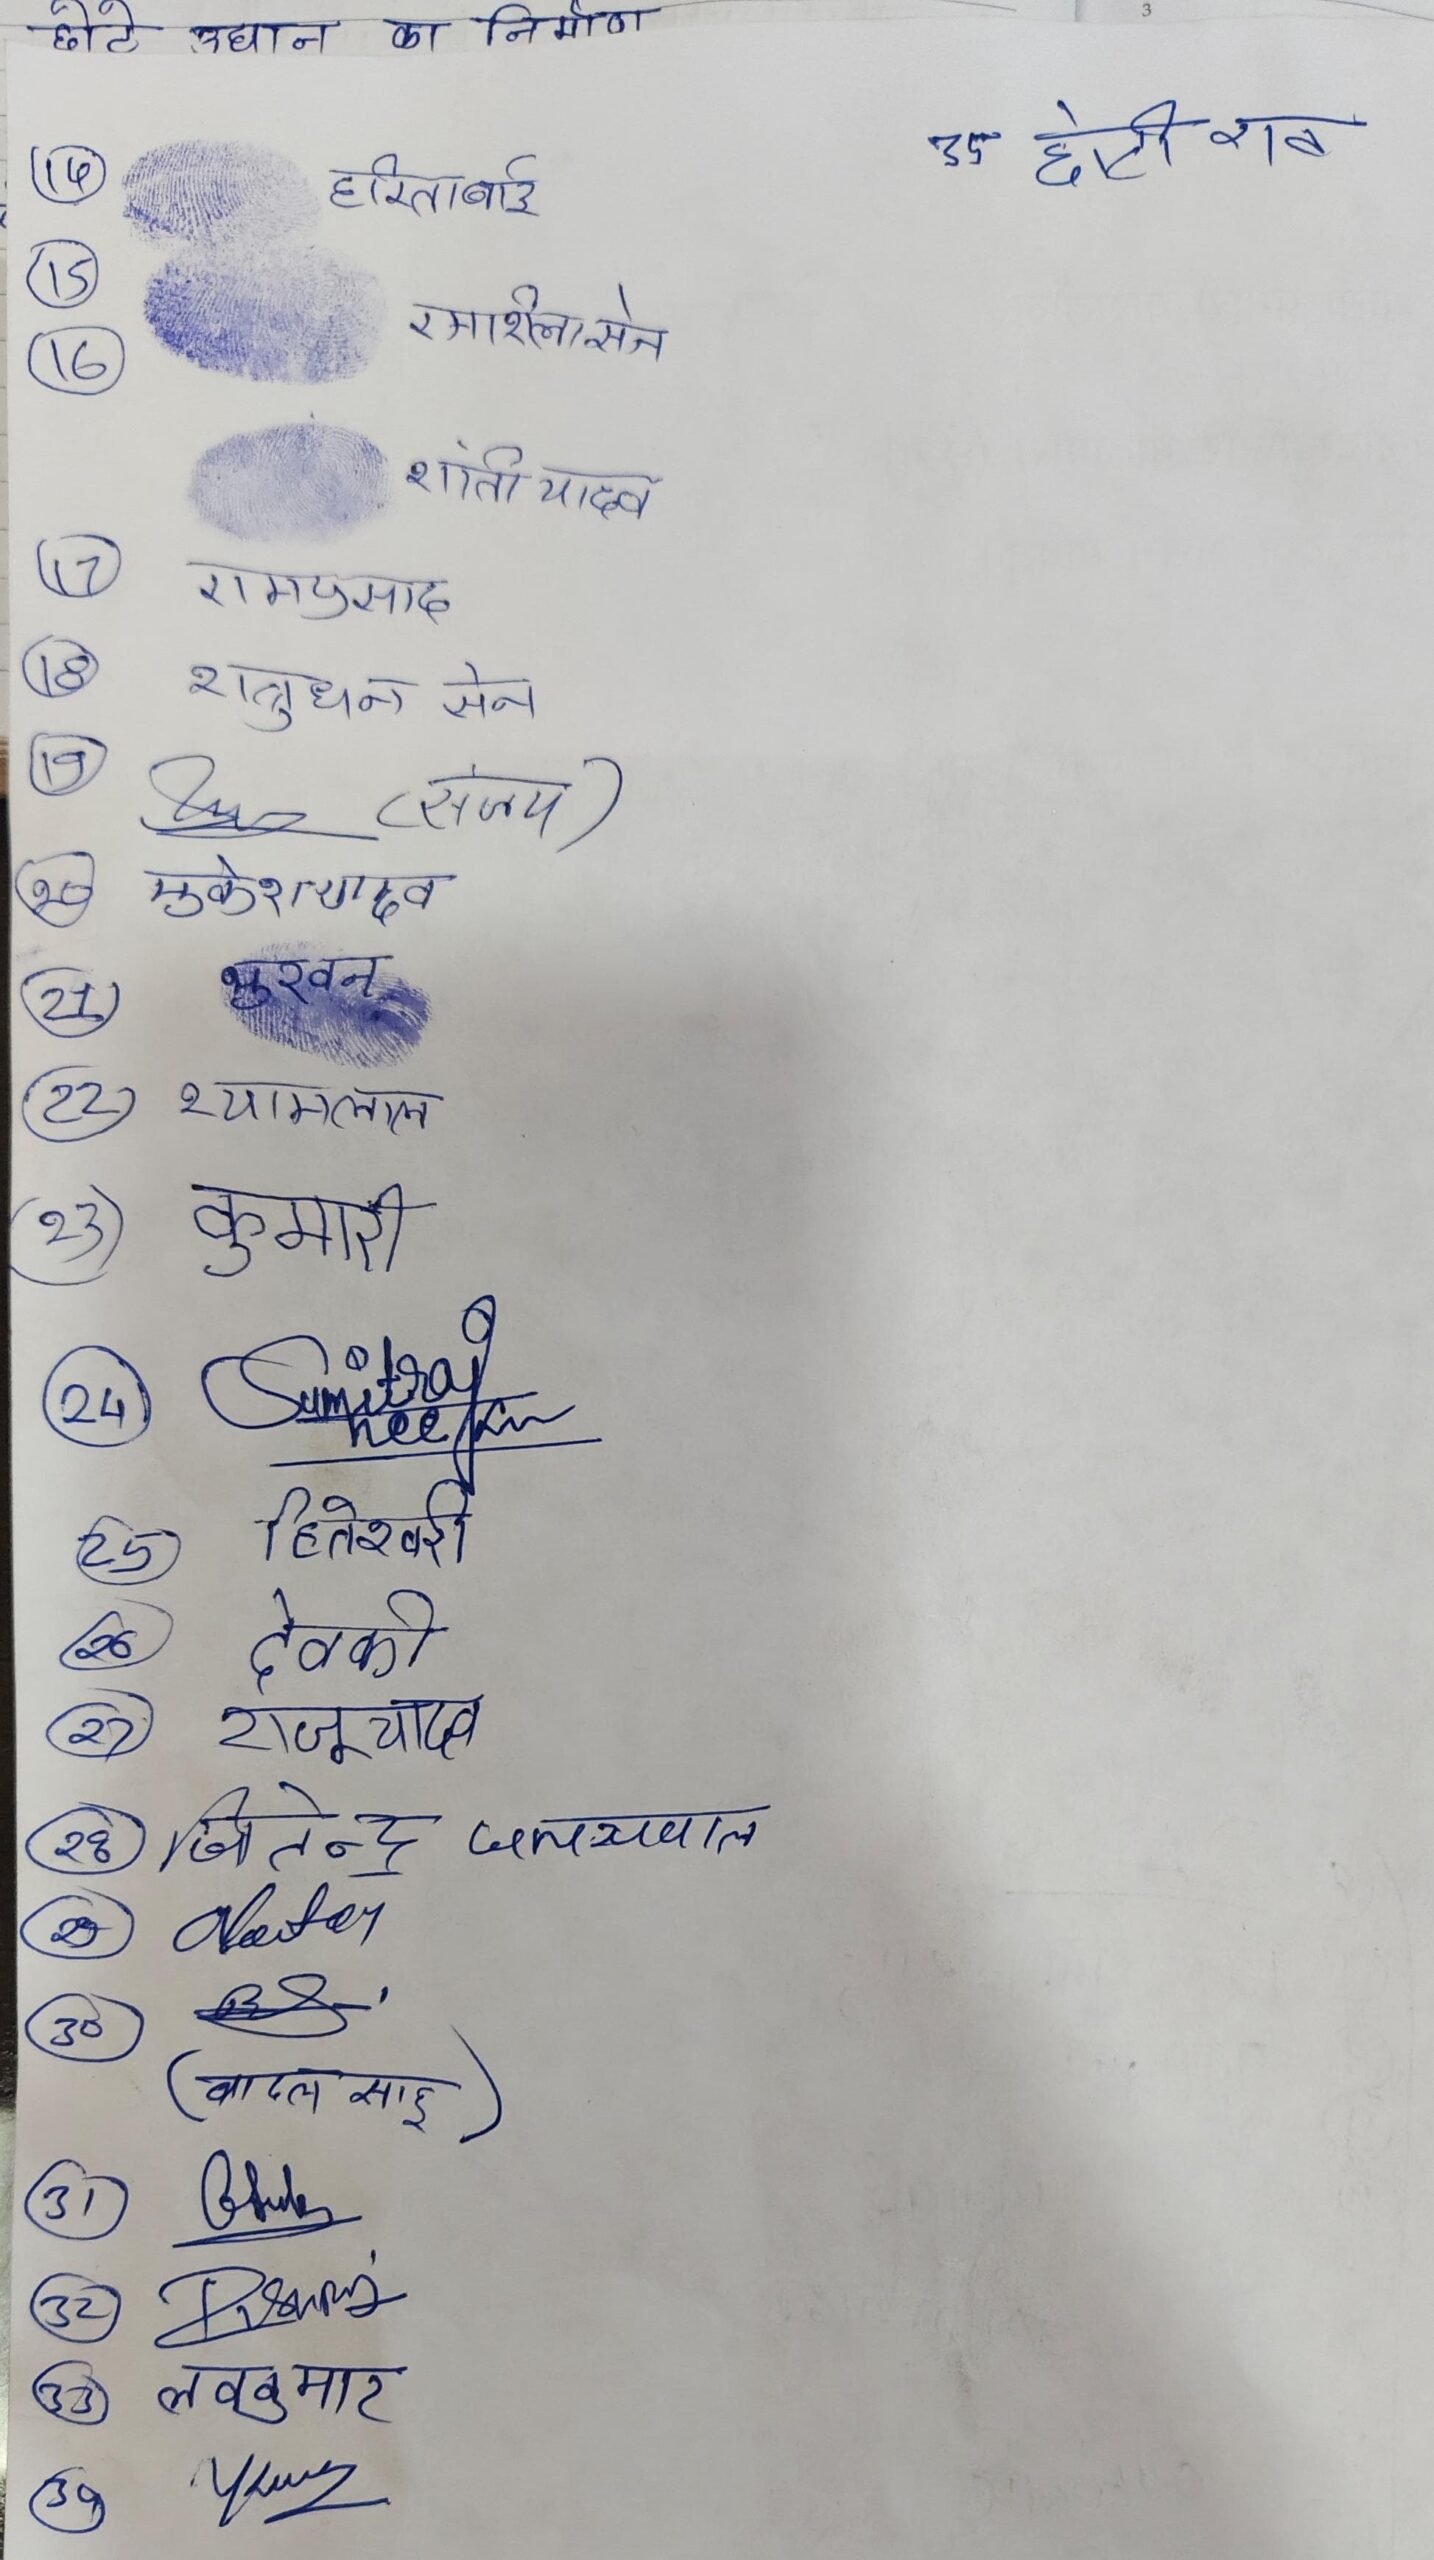 छोटे उद्यान का निर्माण
3
35
14 हरिताबाई
15
16 रमाशीला सेन
शांती यादव
17 रामप्रसाद
18 शत्रुधन सेन
19 (संजय)
20 मुकेश यादव
21 भुखन
22 श्यामलाल
23 कुमारी
24 Sumitra
25 हितेश्वरी
26 देवकी
27 राजू यादव
28 जितेन्द्र जायसवाल
29
30
(बादल साहू)
31
32
33 लवकुमार
34